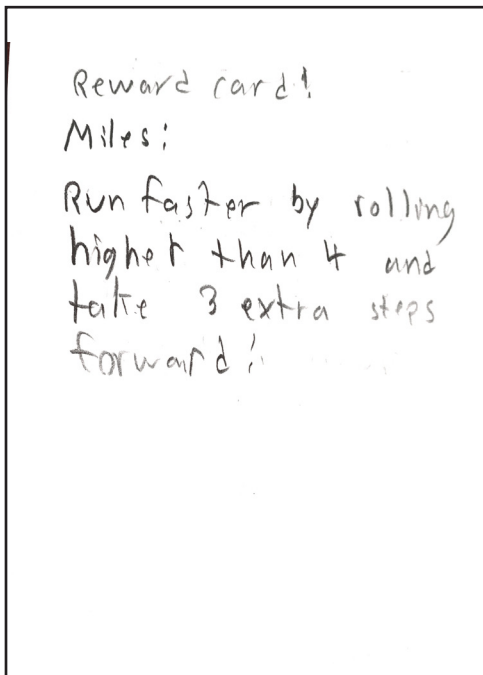 Reward card!
Miles:
Run faster by rolling
higher than 4 and
take 3 extra steps
forward!